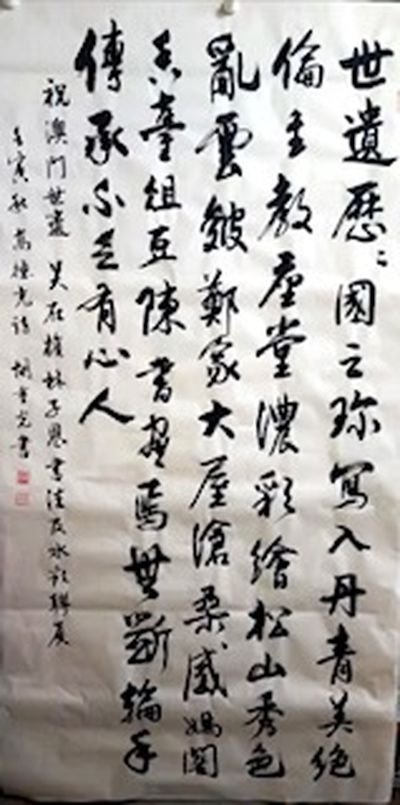 世遺歷々國之珍寫入丹青美絕
倫主教座堂濃彩繪松山秀色
亂雲皴鄭家大屋滄桑感媽閣
香臺俎豆陳書畫焉無斲輪手
傳承不乏有心人
祝澳門世遺 吴在權林子恩書法及水彩聯展
壬寅秋 詩 胡重光書